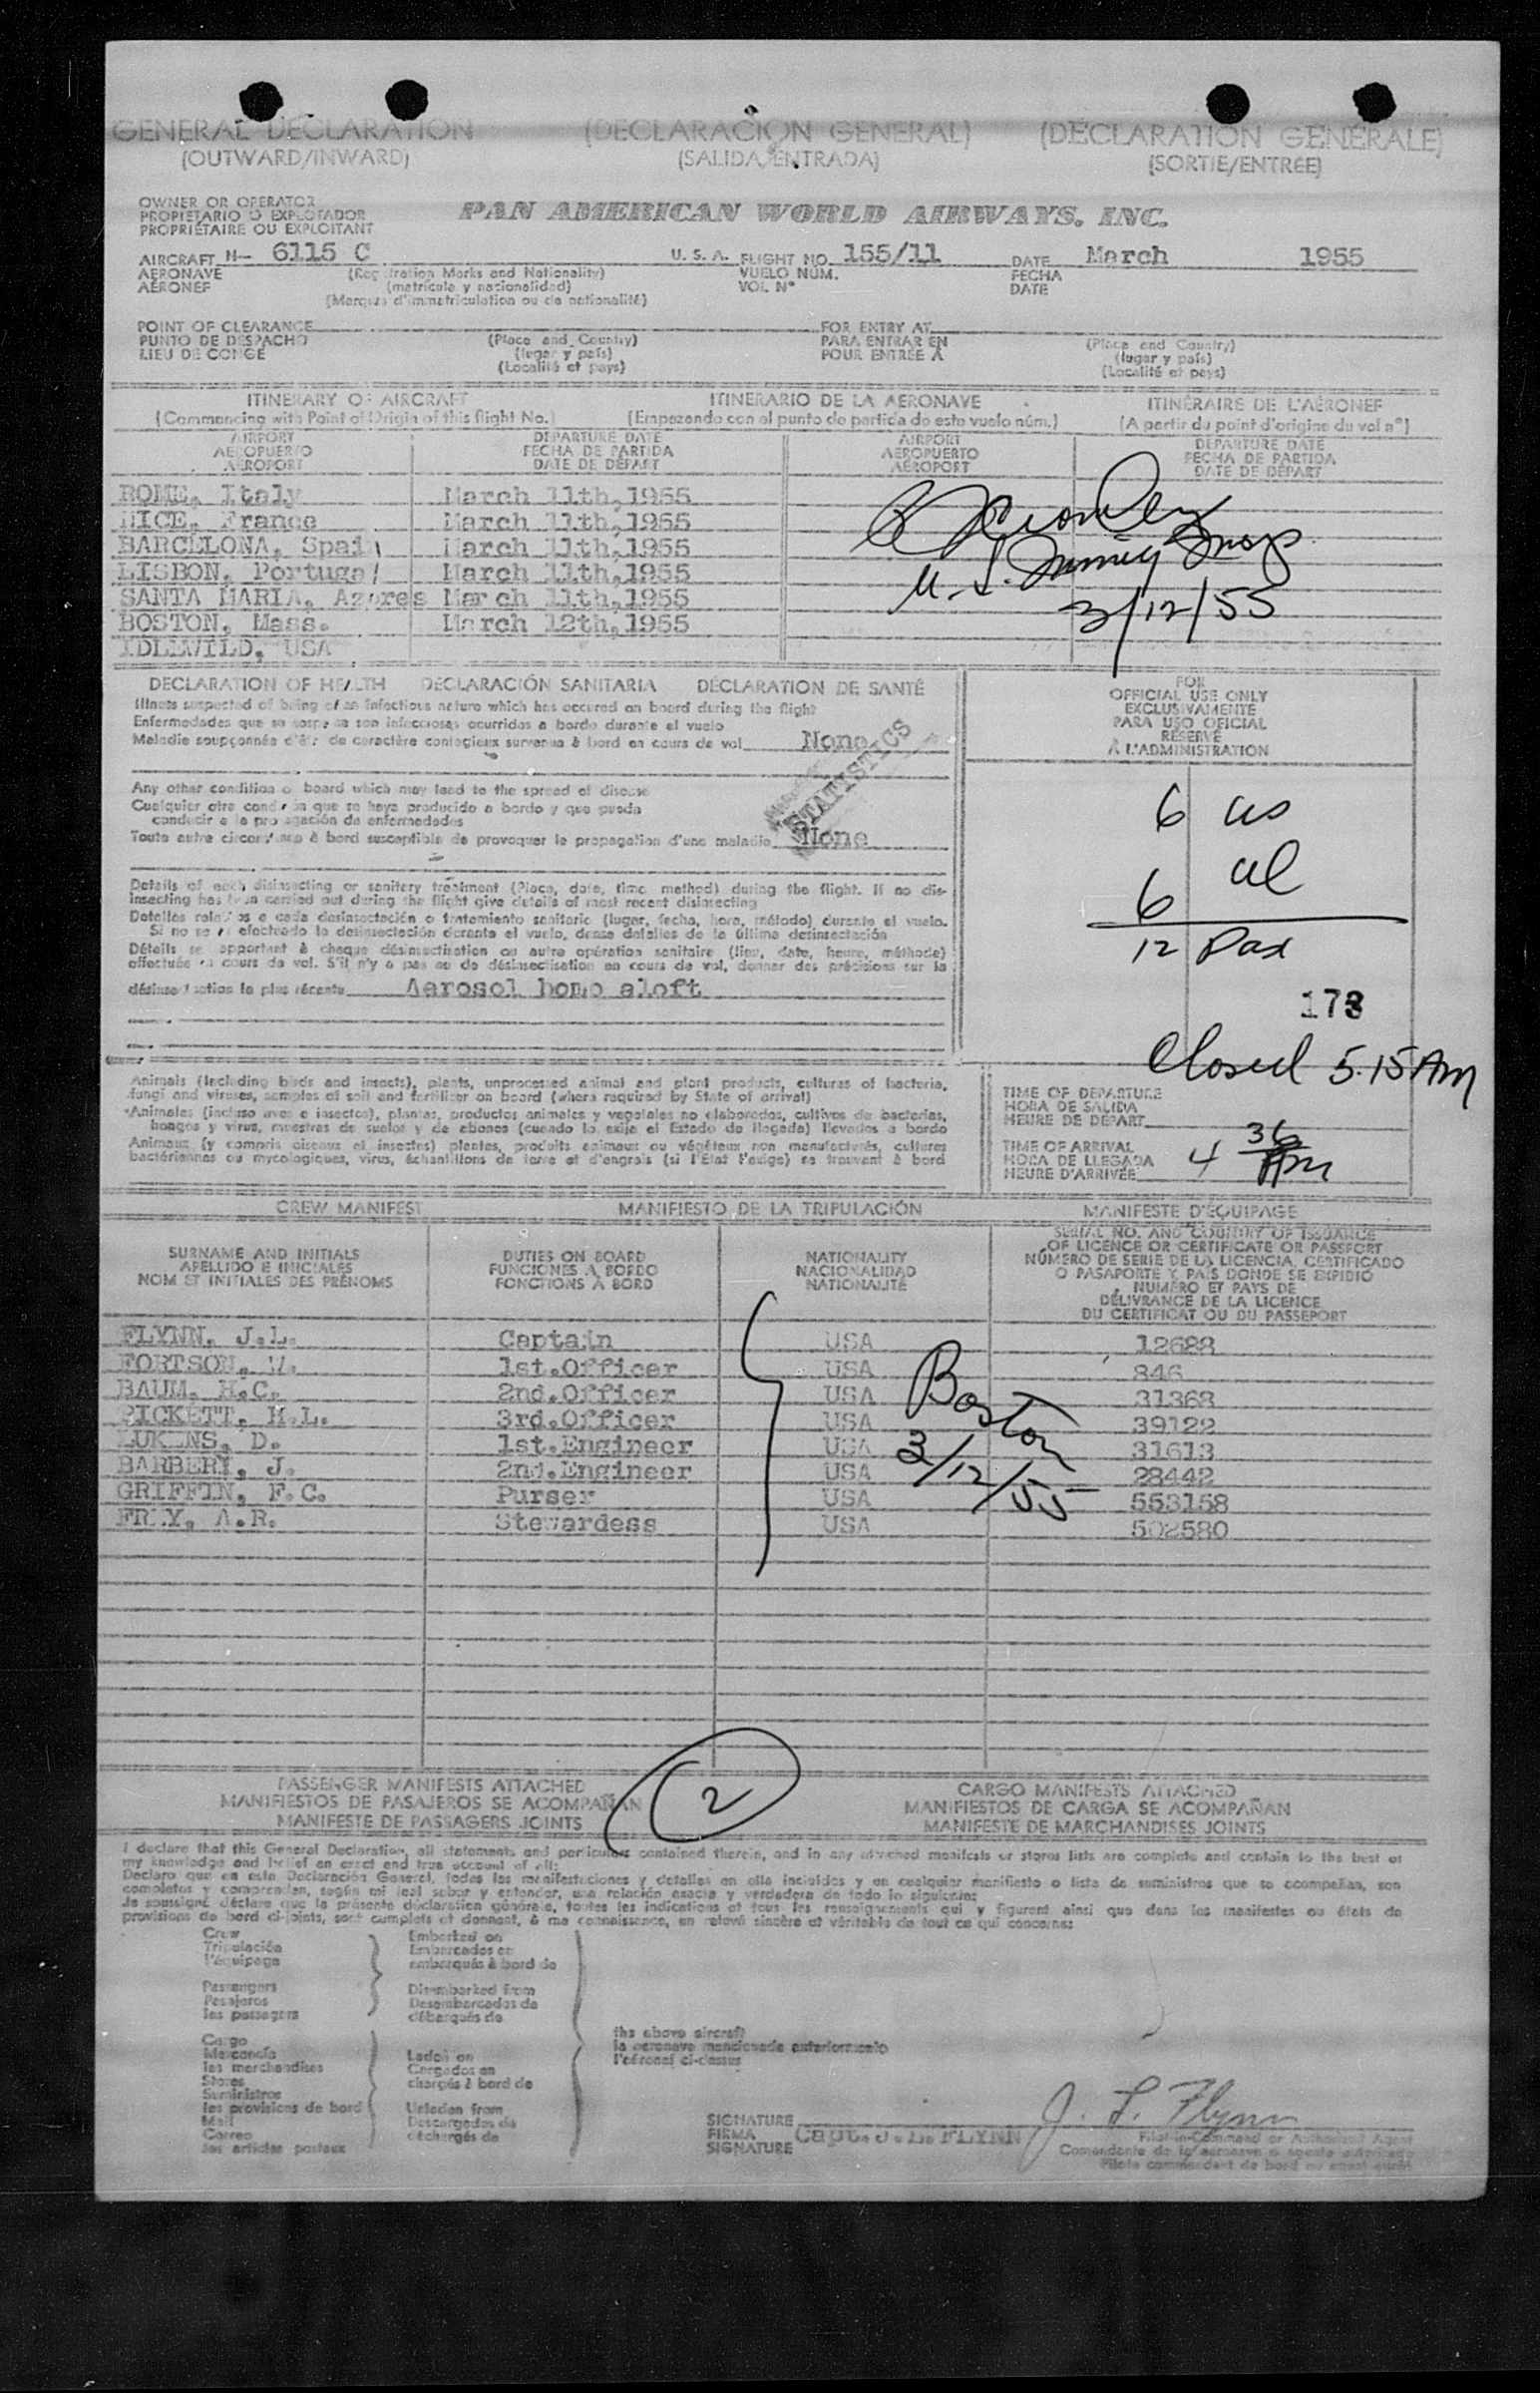 GENERAL DECLARATION (DECLARACIÓN GENERAL) (DÉCLARATION GÉNÉRALE)
(OUTWARD/INWARD) (SALIDA/ENTRADA) (SORTIE/ENTRÉE)
OWNER OR OPERATOR
PROPIETARIO O EXPLOTADOR
PROPRIÉTAIRE OU EXPLOITANT
PAN AMERICAN WORLD AIRWAYS, INC.
AIRCRAFT N- 6115 C U. S. A. FLIGHT NO. 155/11 DATE March 1955
AERONAVE (Registration Marks and Nationality) VUELO NÚM. FECHA
AÉRONEF (matrícula y nacionalidad) VOL N° DATE
(Marques d'immatriculation ou de nationalité)
POINT OF CLEARANCE FOR ENTRY AT
PUNTO DE DESPACHO (Place and Country) PARA ENTRAR EN (Place and Country)
LIEU DE CONGÉ (lugar y país) POUR ENTRÉE À (lugar y país)
(Localité et pays) (Localité et pays)
ITINERARY OF AIRCRAFT ITINERARIO DE LA AERONAVE ITINÉRAIRE DE L'AÉRONEF
(Commencing with Point of Origin of this flight No.) (Empezando con el punto de partida de este vuelo núm.) (A partir du point d'origine du vol n°)
AIRPORT DEPARTURE DATE AIRPORT DEPARTURE DATE
AEROPUERTO FECHA DE PARTIDA AEROPUERTO FECHA DE PARTIDA
AÉROPORT DATE DE DÉPART AÉROPORT DATE DE DÉPART
ROME, Italy March 11th, 1955
NICE, France March 11th, 1955
BARCELONA, Spain March 11th, 1955
LISBON, Portugal March 11th, 1955
SANTA MARIA, Azores March 11th, 1955
BOSTON, Mass. March 12th, 1955
IDLEWILD, USA
U.S. Immig Insp.
3/12/55
DECLARATION OF HEALTH DECLARACIÓN SANITARIA DÉCLARATION DE SANTÉ
Illness suspected of being of an infectious nature which has occured on board during the flight
Enfermedades que se sospecha son infecciosas ocurridas a bordo durante el vuelo
Maladie soupçonnée d'être de caractère contagieux survenue à bord en cours de vol None
STATISTICS
Any other condition on board which may lead to the spread of disease
Cualquier otra condición que se haya producido a bordo y que pueda
conducir a la propagación de enfermedades
Toute autre circonstance à bord susceptible de provoquer la propagation d'une maladie None
Details of each disinsecting or sanitary treatment (Place, date, time, method) during the flight. If no dis-
insecting has been carried out during the flight give details of most recent disinsecting
Detalles relativos a cada desinsectación o tratamiento sanitario (lugar, fecha, hora, método) durante el vuelo.
Si no se ha efectuado la desinsectación durante el vuelo, dense detalles de la última desinsectación
Détails se rapportant à chaque désinsectisation ou autre opération sanitaire (lieu, date, heure, méthode)
effectuée en cours de vol. S'il n'y a pas eu de désinsectisation en cours de vol, donner des précisions sur la
désinsectisation la plus récente Aerosol bomb aloft
FOR
OFFICIAL USE ONLY
EXCLUSIVAMENTE
PARA USO OFICIAL
RÉSERVÉ
À L'ADMINISTRATION
6 US
6 al
12 Pax
173
Closed 5.15 AM
Animals (including birds and insects), plants, unprocessed animal and plant products, cultures of bacteria,
fungi and viruses, samples of soil and fertilizer on board (where required by State of arrival)
Animales (incluso aves e insectos), plantas, productos animales y vegetales no elaborados, cultivos de bacterias,
hongos y virus, muestras de suelos y de abonos (cuando lo exija el Estado de llegada) llevados a bordo
Animaux (y compris oiseaux et insectes) plantes, produits animaux ou végétaux non manufacturés, cultures
bactériennes ou mycologiques, virus, échantillons de terre et d'engrais (si l'Etat l'exige) se trouvant à bord
TIME OF DEPARTURE
HORA DE SALIDA
HEURE DE DÉPART
TIME OF ARRIVAL
HORA DE LLEGADA 4 36 AM
HEURE D'ARRIVÉE
CREW MANIFEST MANIFIESTO DE LA TRIPULACIÓN MANIFESTE D'ÉQUIPAGE
SURNAME AND INITIALS
APELLIDO E INICIALES
NOM ET INITIALES DES PRÉNOMS
DUTIES ON BOARD
FUNCIONES A BORDO
FONCTIONS À BORD
NATIONALITY
NACIONALIDAD
NATIONALITÉ
SERIAL NO. AND COUNTRY OF ISSUANCE
OF LICENCE OR CERTIFICATE OR PASSPORT
NÚMERO DE SERIE DE LA LICENCIA, CERTIFICADO
O PASAPORTE Y PAÍS DONDE SE EXPIDIÓ
NUMÉRO ET PAYS DE
DÉLIVRANCE DE LA LICENCE
DU CERTIFICAT OU DU PASSEPORT
FLYNN, J.L. Captain USA 12688
FORTSON, W. 1st.Officer USA 846
BAUM, H.C. 2nd.Officer USA 31368
PICKETT, H.L. 3rd.Officer USA 39122
LUKENS, D. 1st.Engineer USA 31613
BARBERI, J. 2nd.Engineer USA 28442
GRIFFIN, F.C. Purser USA 553158
A.R. Stewardess USA 502580
Boston
3/12/55
PASSENGER MANIFESTS ATTACHED CARGO MANIFESTS ATTACHED
MANIFIESTOS DE PASAJEROS SE ACOMPAÑAN 2 MANIFIESTOS DE CARGA SE ACOMPAÑAN
MANIFESTE DE PASSAGERS JOINTS MANIFESTE DE MARCHANDISES JOINTS
I declare that this General Declaration, all statements and particulars contained therein, and in any attached manifests or stores lists are complete and contain to the best of
my knowledge and belief an exact and true account of all:
Declaro que en esta Declaración General, todas las manifestaciones y detalles en ella incluidos y en cualquier manifiesto o lista de suministros que se acompañan, son
completos y comprenden, según mi leal saber y entender, una relación exacta y verdadera de todo lo siguiente:
Je soussigné déclare que la présente déclaration générale, toutes les indications et tous les renseignements qui y figurent ainsi que dans les manifestes ou états de
provisions de bord ci-joints, sont complets et donnent, à ma connaissance, un relevé sincère et véritable de tout ce qui concerne:
Crew Embarked on
Tripulación Embarcados en
l'équipage embarqués à bord de
Passengers Disembarked from
Pasajeros Desembarcados de
les passagers débarqués de
the above aircraft
la aeronave mencionada anteriormente
l'aéronef ci-dessus
Cargo
Mercancía Laden on
les marchandises Cargados en
Stores chargés à bord de
Suministros
les provisions de bord Unladen from
Mail Descargados de
Correo déchargés de
les articles postaux
SIGNATURE J. L. Flynn
FIRMA Capt. J. L. FLYNN Pilot-in-Command or Authorized Agent
SIGNATURE Comandante de la aeronave o agente autorizado
Pilote commandant de bord ou agent